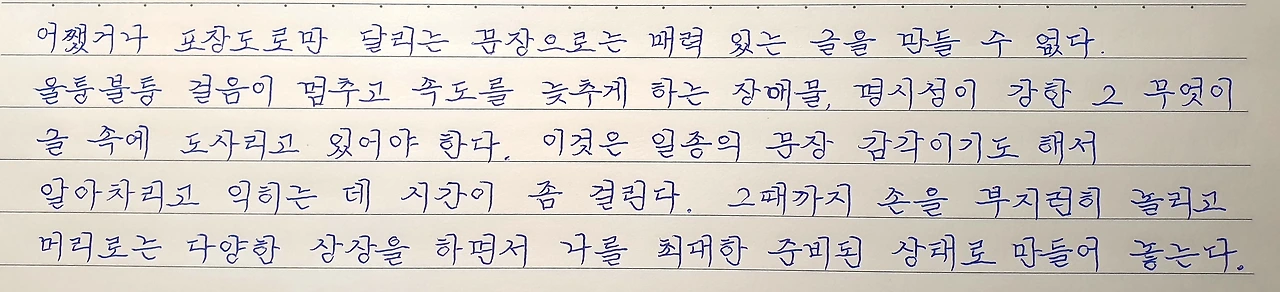 어쨌거나 포장도로만 달리는 문장으로는 매력 있는 글을 만들 수 없다.
울퉁불퉁 걸음이 멈추고 속도를 늦추게 하는 장애물, 명시성이 강한 그 무엇이
글 속에 도사리고 있어야 한다. 이것은 일종의 문장 감각이기도 해서
알아차리고 익히는 데 시간이 좀 걸린다. 그때까지 손을 부지런히 놀리고
머리로는 다양한 상상을 하면서 나를 최대한 준비된 상태로 만들어 놓는다.